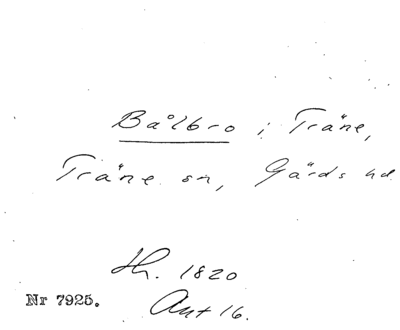 Bålbro i Träne,
Träne sn, Gärds hd
Hh. 1820
Nr 7925.
Ant 16.